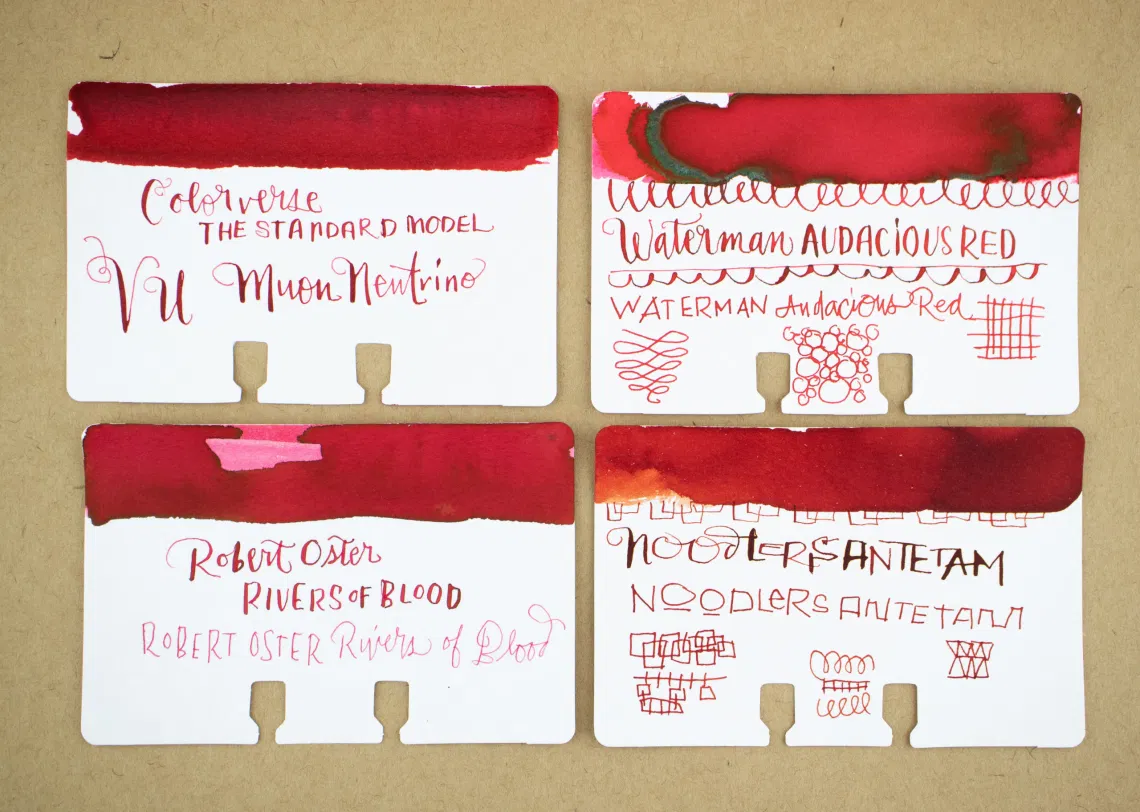 Colorverse
THE STANDARD MODEL
VU Muon Neutrino
Waterman AUDACIOUS RED
WATERMAN Audacious Red
Robert Oster
RIVERS OF BLOOD
ROBERT OSTER Rivers of Blood
NOODLERS ANTETAM
NOODLERS ANTETAM